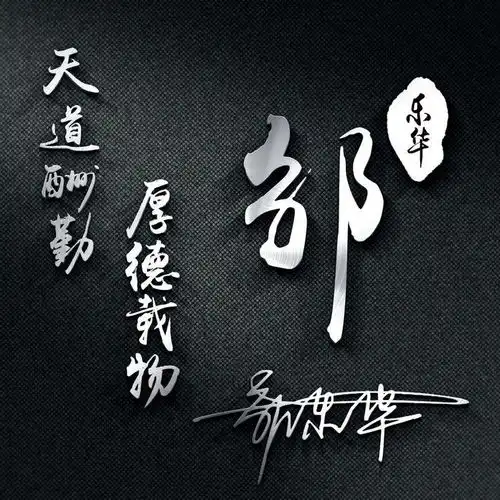 天道酬勤
厚德载物
邹
乐华
邹乐华